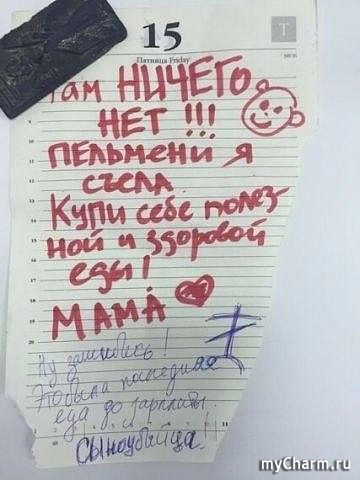 15
Пятница Friday
Там НИЧЕГО
НЕТ !!!
ПЕЛЬМЕНИ Я
СЪЕЛА.
Купи себе полез-
ной и здоровой
еды!
МАМА
Ну зашибись!
Это была последняя
еда до зарплаты.
Сыноубийца!
myCharm.ru